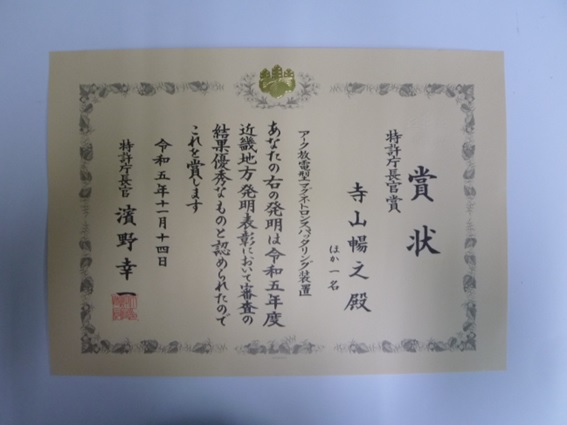 賞状
特許庁長官賞
寺山暢之殿
ほか一名
アーク放電型マグネトロンスパッタリング装置
あなたの右の発明は令和五年度
近畿地方発明表彰において審査の
結果優秀なものと認められたので
これを賞します
令和五年十一月十四日
特許庁長官 濱野幸一